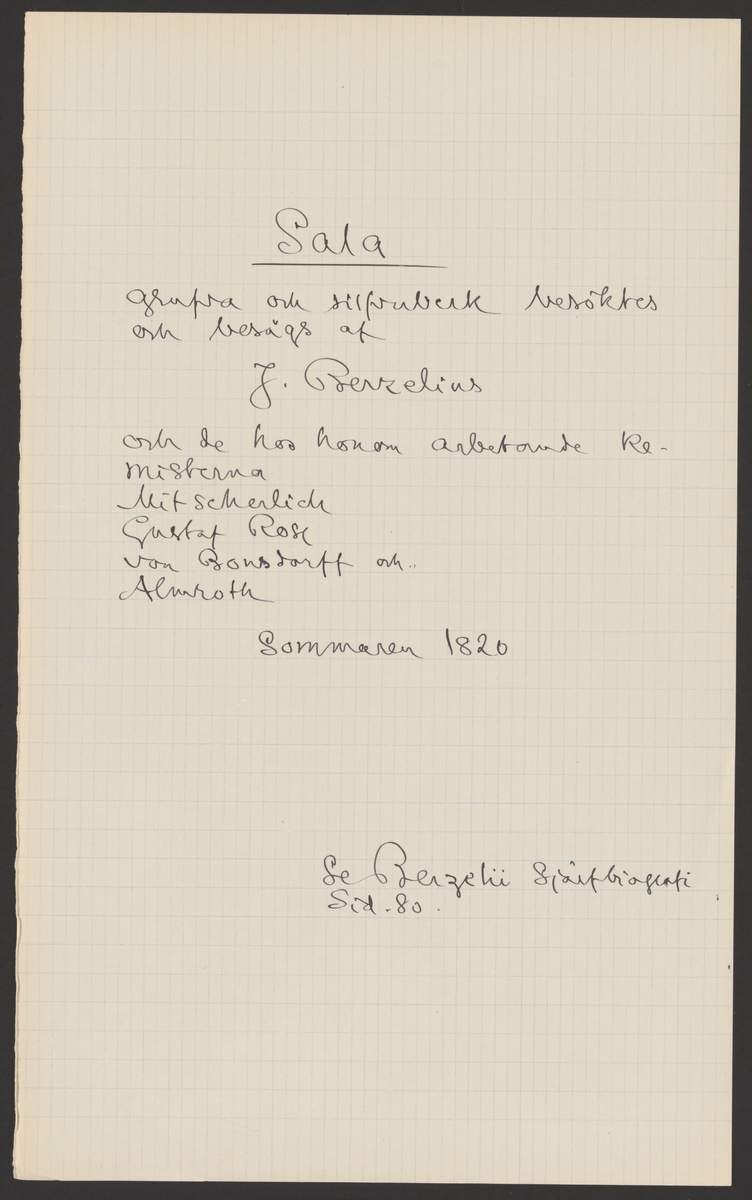 Sala
grufva och silfververk besöktes
och besågs af
J. Berzelius
och de hos honom arbetande ke-
misterna
Mitscherlich
Gustaf Rose
von Bonsdorff och
Almroth
Sommaren 1820
Se Berzelii Sjärfbiografi
Sid. 80.